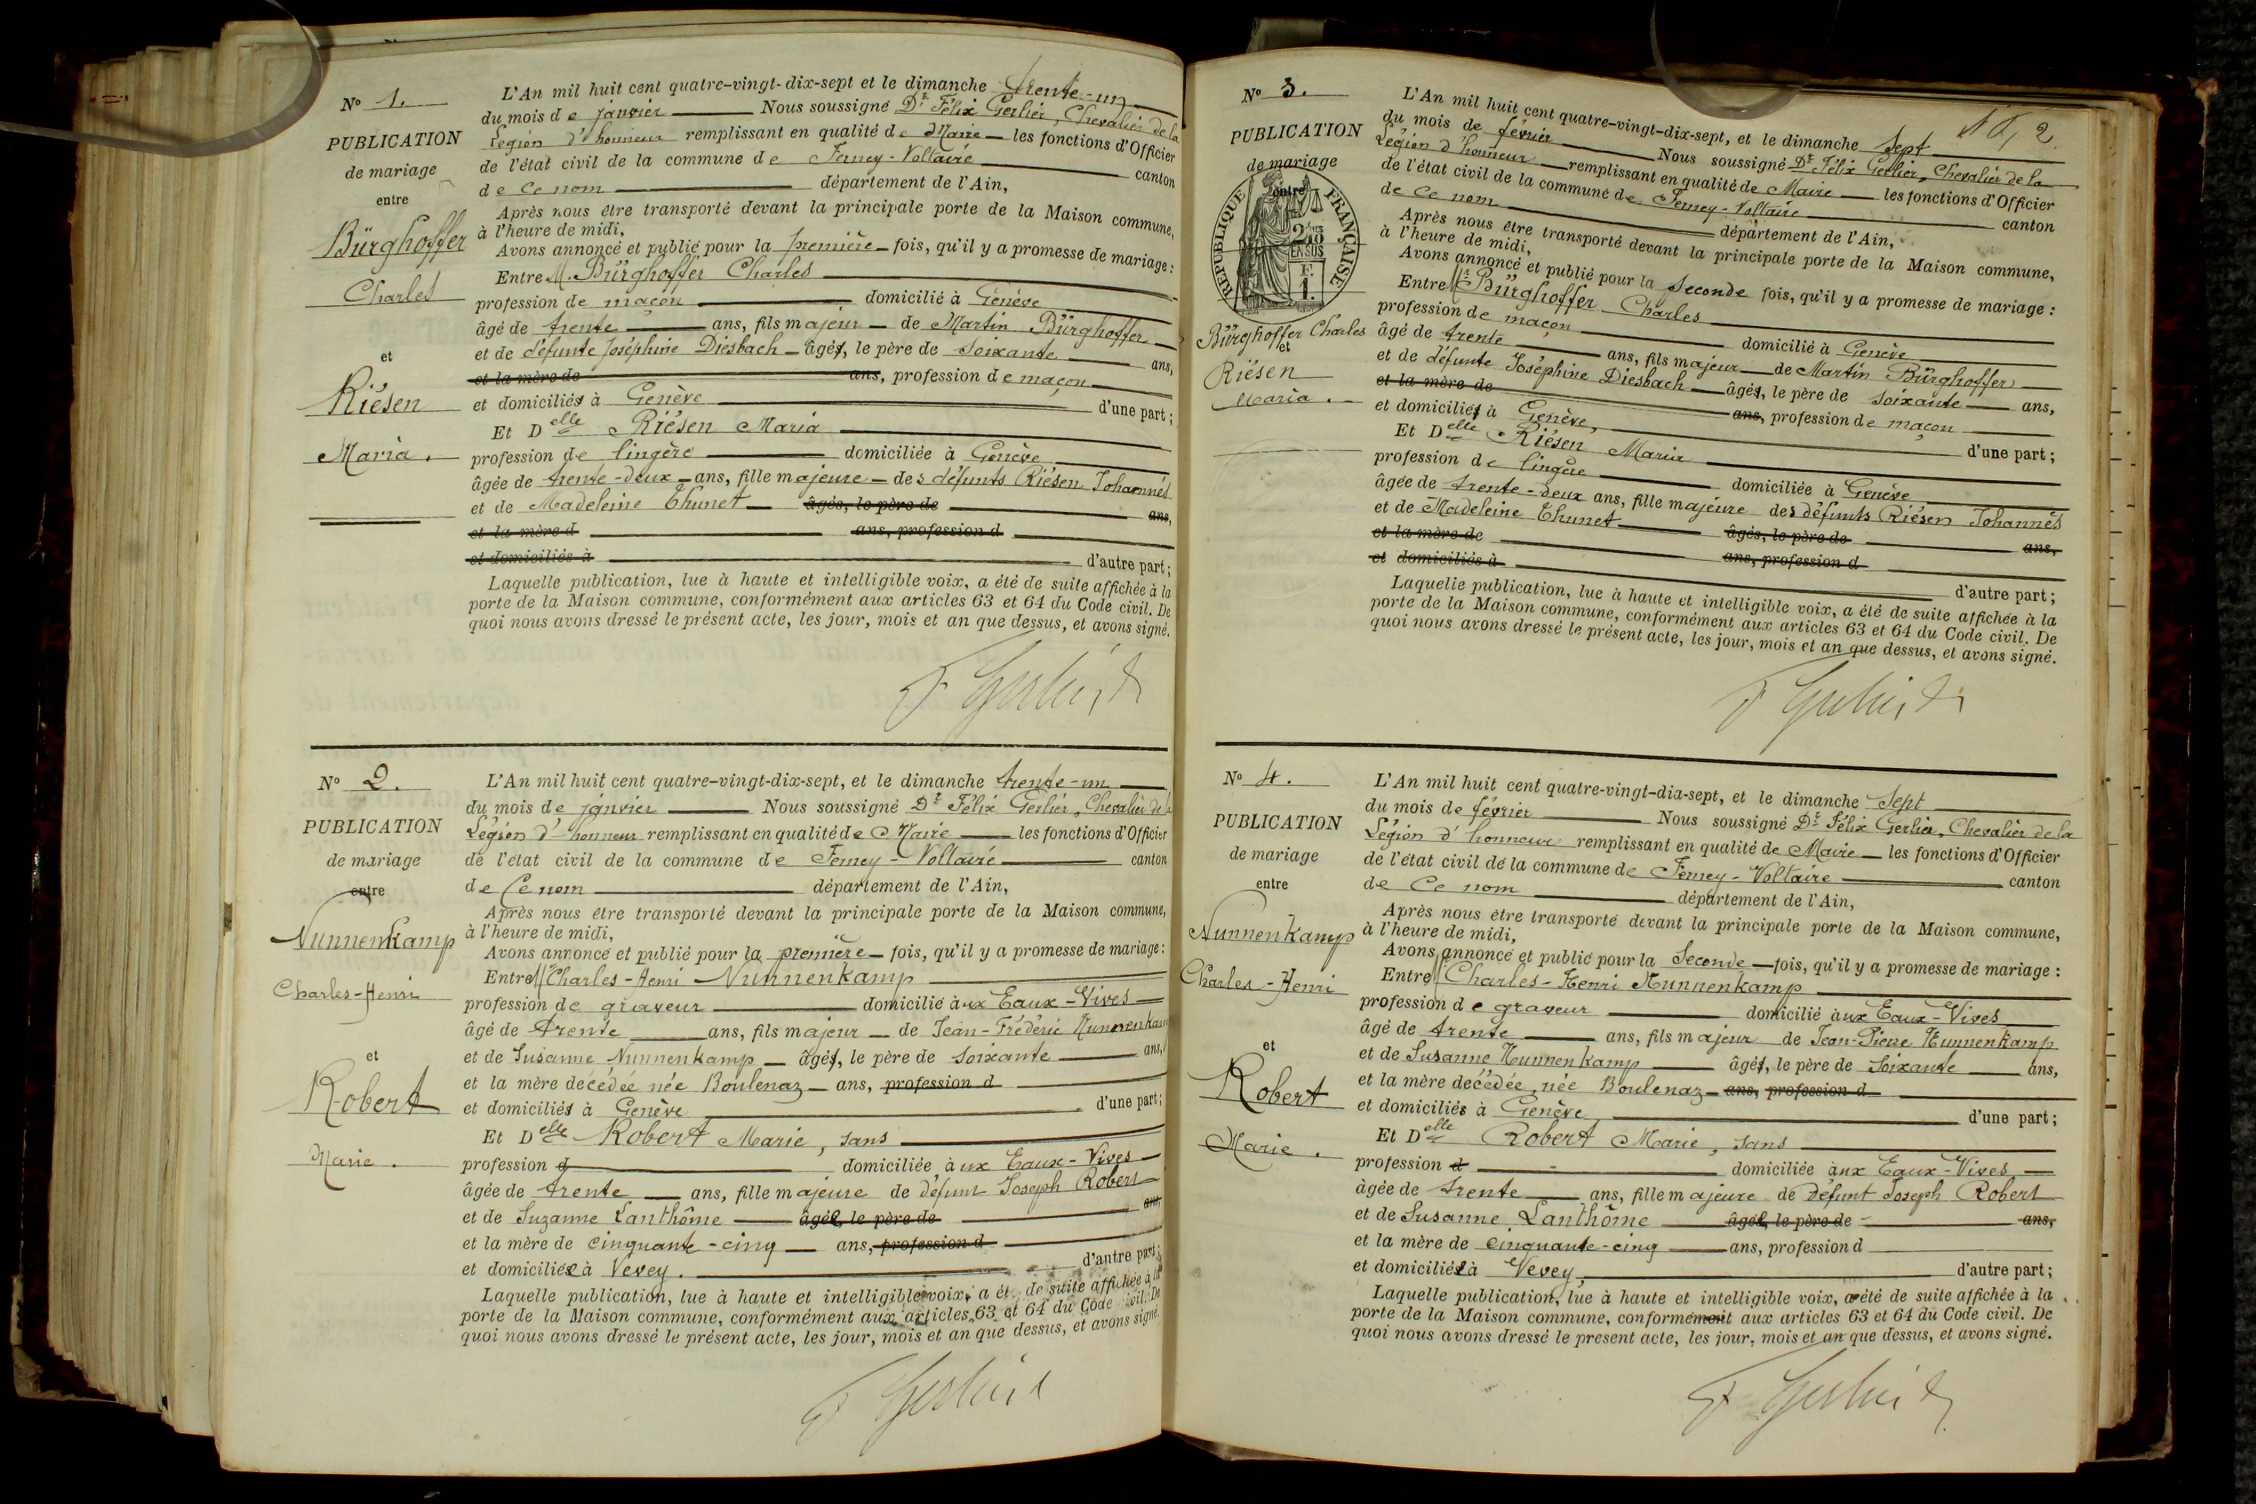 N° 1.
PUBLICATION
de mariage
entre
Bürghoffer
Charles
et
Riésen
Maria.
L'An mil huit cent quatre-vingt-dix-sept et le dimanche trente-un
du mois de janvier Nous soussigné Dr Félix Gerlier, Chevalier de la
Légion d'honneur remplissant en qualité de Maire les fonctions d'Officier
de l'état civil de la commune de Ferney-Voltaire canton
de ce nom département de l'Ain,
Après nous être transporté devant la principale porte de la Maison commune,
à l'heure de midi,
Avons annoncé et publié pour la première fois, qu'il y a promesse de mariage :
Entre M. Bürghoffer Charles
profession de maçon domicilié à Genève
âgé de trente ans, fils majeur de Martin Bürghoffer
et de défunte Joséphine Diesbach âgés, le père de soixante ans,
et la mère de ans, profession de maçon
et domiciliés à Genève d'une part ;
Et Delle Riésen Maria
profession de lingère domiciliée à Genève
âgée de trente-deux ans, fille majeure des défunts Riésen Johannés
et de Madeleine Thunet âgés, le père de ans,
et la mère d ans, profession d
et domiciliés à d'autre part ;
Laquelle publication, lue à haute et intelligible voix, a été de suite affichée à la
porte de la Maison commune, conformément aux articles 63 et 64 du Code civil. De
quoi nous avons dressé le présent acte, les jour, mois et an que dessus, et avons signé.
F Gerlier
N° 2.
PUBLICATION
de mariage
entre
Nunnenkamp
Charles-Henri
et
Robert
Marie.
L'An mil huit cent quatre-vingt-dix-sept, et le dimanche trente-un
du mois de janvier Nous soussigné Dr Félix Gerlier, Chevalier de la
Légion d'honneur remplissant en qualité de Maire les fonctions d'Officier
de l'état civil de la commune de Ferney-Voltaire canton
de Ce nom département de l'Ain,
Après nous être transporté devant la principale porte de la Maison commune,
à l'heure de midi,
Avons annoncé et publié pour la première fois, qu'il y a promesse de mariage :
Entre M Charles-Henri Nunnenkamp
profession de graveur domicilié aux Eaux-Vives
âgé de trente ans, fils majeur de Jean-Frédéric Nunnenkamp
et de Susanne Nunnenkamp âgés, le père de soixante ans,
et la mère décédée née Boulenaz ans, profession d
et domiciliés à Genève d'une part ;
Et Delle Robert Marie, sans
profession d domiciliée aux Eaux-Vives
âgée de trente ans, fille majeure de défunt Joseph Robert
et de Suzanne Lanthôme âgée, le père de ans,
et la mère de cinquante-cinq ans, profession d
et domiciliée à Vevey. d'autre part ;
Laquelle publication, lue à haute et intelligible voix, a été de suite affichée à la
porte de la Maison commune, conformément aux articles 63 et 64 du Code civil. De
quoi nous avons dressé le présent acte, les jour, mois et an que dessus, et avons signé.
F Gerlier
2
N° 3.
PUBLICATION
de mariage
entre
RÉPUBLIQUE FRANÇAISE
2/10
EN SUS
F.
1.
Bürghoffer Charles
et
Riésen
Maria.
L'An mil huit cent quatre-vingt-dix-sept, et le dimanche Sept
du mois de février Nous soussigné Dr Félix Gerlier, Chevalier de la
Légion d'honneur remplissant en qualité de Maire les fonctions d'Officier
de l'état civil de la commune de Ferney-Voltaire canton
de ce nom département de l'Ain,
Après nous être transporté devant la principale porte de la Maison commune,
à l'heure de midi,
Avons annoncé et publié pour la seconde fois, qu'il y a promesse de mariage :
Entre Mr Bürghoffer Charles
profession de maçon domicilié à Genève
âgé de trente ans, fils majeur de Martin Bürghoffer
et de défunte Joséphine Diesbach âgés, le père de soixante ans,
et la mère de ans, profession de maçon
et domiciliés à Genève, d'une part ;
Et Delle Riésen Maria
profession de lingère domiciliée à Genève
âgée de trente-deux ans, fille majeure des défunts Riésen Johannés
et de Madeleine Thunet âgés, le père de ans,
et la mère de ans, profession d
et domiciliés à d'autre part ;
Laquelle publication, lue à haute et intelligible voix, a été de suite affichée à la
porte de la Maison commune, conformément aux articles 63 et 64 du Code civil. De
quoi nous avons dressé le présent acte, les jour, mois et an que dessus, et avons signé.
F Gerlier
N° 4.
PUBLICATION
de mariage
entre
Nunnenkamp
Charles-Henri
et
Robert
Marie.
L'An mil huit cent quatre-vingt-dix-sept, et le dimanche Sept
du mois de février Nous soussigné Dr Félix Gerlier, Chevalier de la
Légion d'honneur remplissant en qualité de Maire les fonctions d'Officier
de l'état civil de la commune de Ferney-Voltaire canton
de Ce nom département de l'Ain,
Après nous être transporté devant la principale porte de la Maison commune,
à l'heure de midi,
Avons annoncé et publié pour la Seconde fois, qu'il y a promesse de mariage :
Entre M Charles-Henri Nunnenkamp
profession de graveur domicilié aux Eaux-Vives
âgé de trente ans, fils majeur de Jean-Pierre Nunnenkamp
et de Susanne Nunnenkamp âgés, le père de Soixante ans,
et la mère décédée, née Boulenaz ans, profession d
et domiciliés à Genève d'une part ;
Et Delle Robert Marie, sans
profession d domiciliée aux Eaux-Vives
âgée de trente ans, fille majeure de Défunt Joseph Robert
et de Susanne Lanthôme âgée, le père de ans,
et la mère de cinquante-cinq ans, profession d
et domiciliée à Vevey, d'autre part ;
Laquelle publication, lue à haute et intelligible voix, a été de suite affichée à la
porte de la Maison commune, conformément aux articles 63 et 64 du Code civil. De
quoi nous avons dressé le present acte, les jour, mois et an que dessus, et avons signé.
F Gerlier